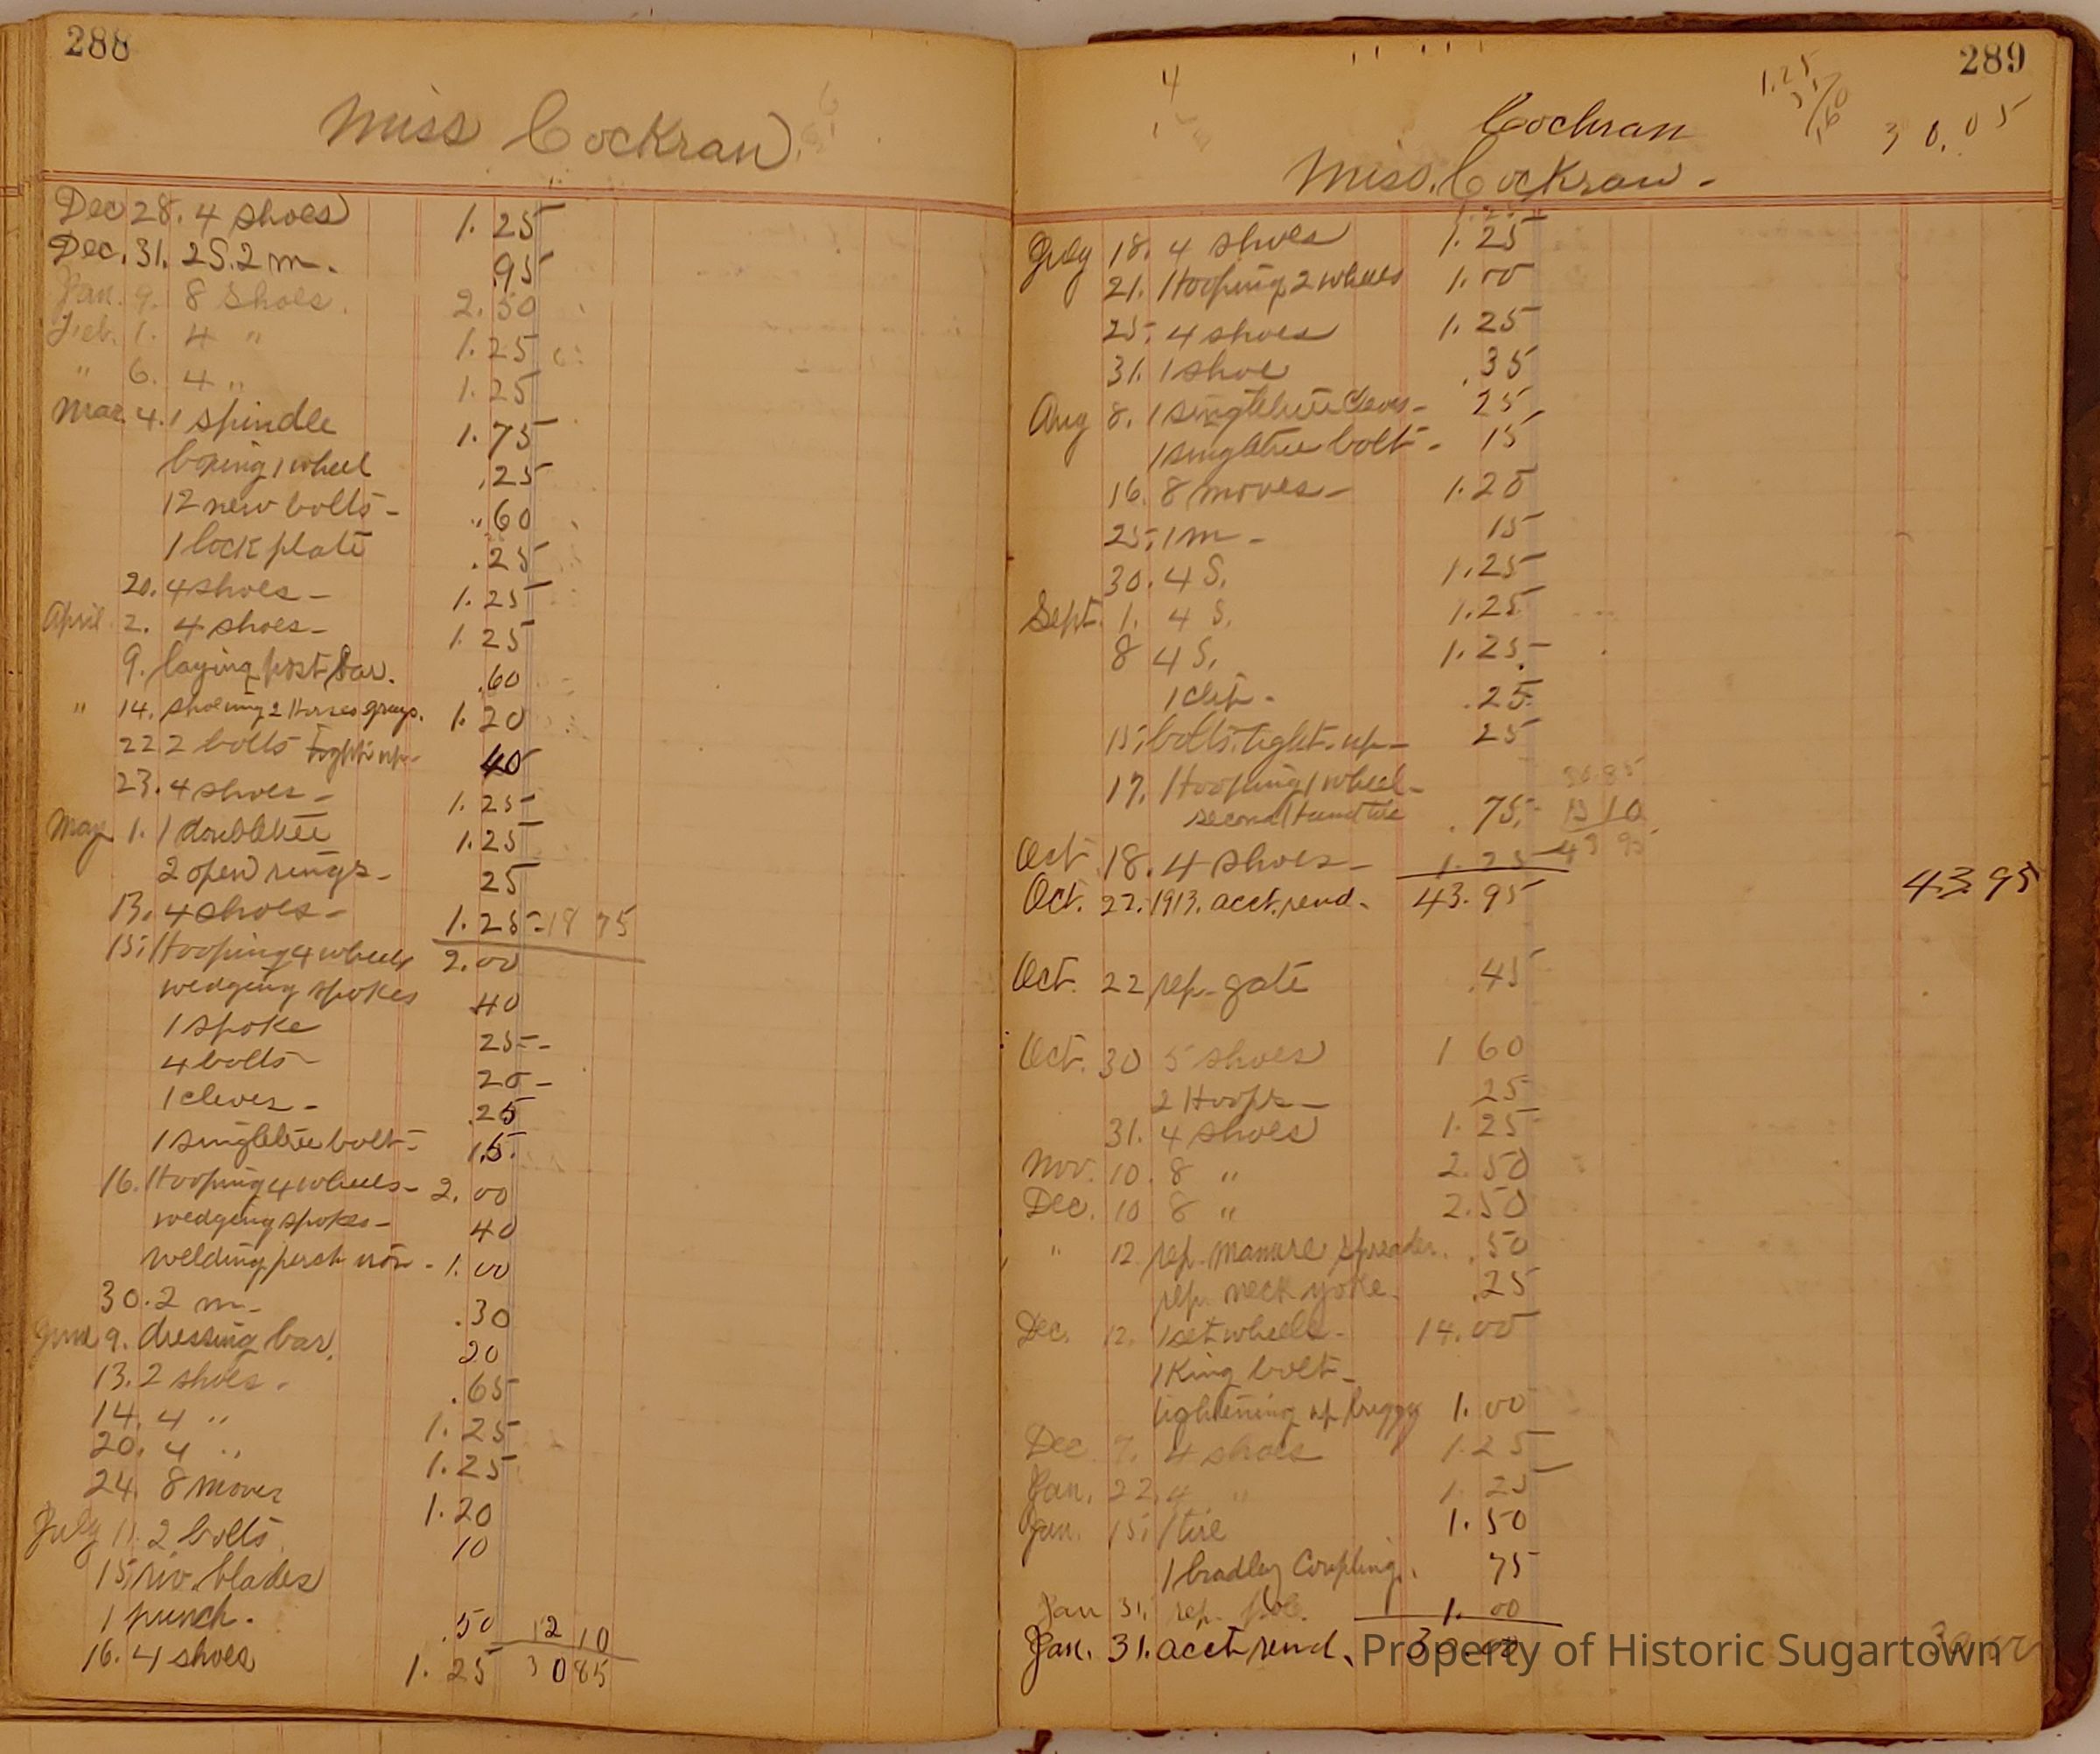 288
Miss Cockran.
Dec 28. 4 shoes 1.25
Dec. 31. 2S. 2m. .95
Jan. 9. 8 shoes. 2.50
Feb. 1. 4 " 1.25
" 6. 4 " 1.25
Mar. 4. 1 spindle 1.75
boxing 1 wheel .25
12 new bolts - .60
1 lock plate .25
20. 4 shoes - 1.25
April 2. 4 shoes - 1.25
9. laying post bar. .60
" 14. shoeing 2 Horses 1.20
22 2 bolts tight up - 40
23. 4 shoes - 1.25
May 1. 1 doubletree 1.25
2 open rings - 25
13. 4 shoes - 1.25 - 18 75
15. Hooping 4 wheels 2.00
wedging spokes 40
1 spoke 25 -
4 bolts - 20 -
1 cleves - .25
1 singletree bolt - 15.
16. Hooping 4 wheels - 2.00
wedging spokes - 40
welding perch iron - 1.00
30. 2 m - .30
June 9. dressing bar. 20
13. 2 shoes - .65
14. 4 " 1.25
20. 4 " 1.25
24. 8 moves 1.20
July 11. 2 bolts. 10
15. riv. blades
1 punch. .50 12 10
16. 4 shoes 1.25 30 85
289
4
1.25
30.05
Cochran
Miss. Cockran -
July 18. 4 shoes 1.25
21. Hooping 2 wheels 1.00
25. 4 shoes 1.25
31. 1 shoe .35
Aug 8. 1 singletree cleves - 25
1 singletree bolt - 15
16. 8 moves - 1.20
25. 1 m - 15
30. 4 S. 1.25
Sept. 1. 4 S. 1.25
8 4 S. 1.25 -
1 clip - .25
15. bolts. tight. up - 25
17. Hoopling 1 wheel -
second Hand tire .75
30.85
13 10
43 95
Oct 18. 4 shoes - 1.25
Oct. 22. 1913. acct. rend. 43.95 43.95
Oct. 22 rep. gate .45
Oct. 30 5 shoes 1 60
2 Hoops - 25
31. 4 shoes 1.25
Nov. 10. 8 " 2.50
Dec. 10 8 " 2.50
" 12. rep. manure spreader. .50
rep. neck yoke. .25
Dec. 12. 1 set wheels - 14.00
1 King bolt -
tightening up buggy 1.00
Dec 7. 4 shoes 1.25
Jan. 22. 4 " 1.25
Jan. 15. 1 tire 1.50
1 bradley Coupling. 75
Jan 31. rep. pole. 1.00
Jan. 31. acct rend.
Property of Historic Sugartown